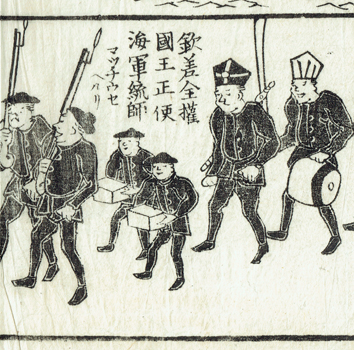 欽差全權
國王正使
海軍統師
マツチウセ
ヘルリ